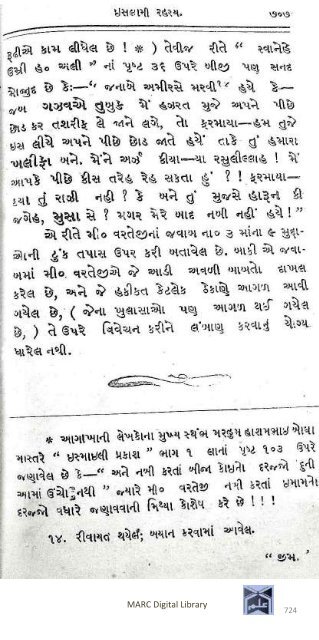 ઇસલામી રહસ્ય. ૭૦૭
રૂહીએ કામ લીધેલ છે ! * ) તેવીજ રીતે “ સ્વાનેહે
ઉમ્રી હ૦ અલી ” નાં પૃષ્ટ ૩૬ ઉપરે બીજી પણ સનદ
મૌજુદ છે કે:-“ જનાબે અમીરસે મરવી હયે કે—
જબ ગઝવએ તુબુક મેં હઝરત મુજે અપને પીછે
છોડ કર તશરીફ લે જાને લગે, તો ફરમાયા—હમ તુજે
ઇસ લીયે અપને પીછે છોડ જાતે હયે તાકે તું હમારા
ખલીફા બને. મેંને અર્ઝ કીયા—યા રસુલીલ્લાહ ! મેં
આપકે પીછે કીસ તરેહ રેહ સકતા હું ? ! ફરમાયા—
ક્યા તું રાઝી નહી ? કે બને તું મુજસે હારૂન કી
જગેહ, મુસા સે ? મગર મેરે બાદ નબી નહીં હયે !”
એ રીતે મી૦ વરતેજીનાં જવાબ ના૦ ૩ માંના ૯ મુદ્દા-
ઓની ટુંક તપાસ ઉપર કરી બતાવેલ છે. બાકી એ જવા-
બમાં મી૦ વરતેજીએ જે આડી અવળી બાબતો દાખલ
કરેલ છે, અને જે હકીકત કેટલેક ઠેકાણે આગળ આવી
ગયેલ છે, ( જેના ખુલાસાઓ પણ આગળ થઈ ગયેલ
છે, ) તે ઉપરે વિવેચન કરીને લંબાણ કરવાનું યોગ્ય
ધારેલ નથી.
* આગાખાની લેખકોના મુખ્ય સ્થંભ મરહુમ હાશમભાઈ બોઘા
માસ્તરે “ ઇસ્માઇલી પ્રકાશ ” ભાગ ૧ લાનાં પૃષ્ટ ૧૦૩ ઉપરે
જણાવેલ છે કે—“ અને નબી કરતાં બીજા કોઇનો દરજ્જો દુની
આમાં ઉંચો નથી ” જ્યારે મી૦ વરતેજી નબી કરતાં ઇમામનો
દરજ્જો વધારે જણાવવાની મિથ્યા કોશેષ કરે છે ! ! !
૧૪. રીવાયત થયેલ; બયાન કરવામાં આવેલ.
“ જીમ. ”
MARC Digital Library 724